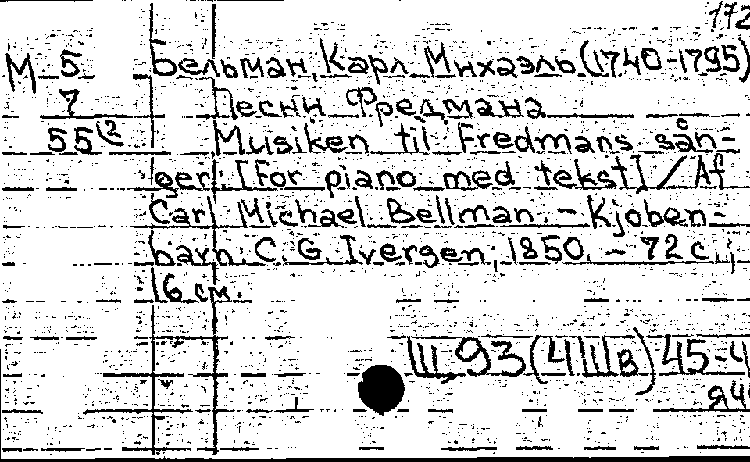 172
М 5 Бельман, Карл Михаэль (1740-1795)
7 Песни Фредмана
55 Musiken til Fredmans sån-
ger: [For piano med tekst] / Af
Carl Michael Bellman. - Kjoben-
havn: C. G. Iversen, 1850. - 72 с.;
16 см.
Ш 93(4Шв) 45-4
я4